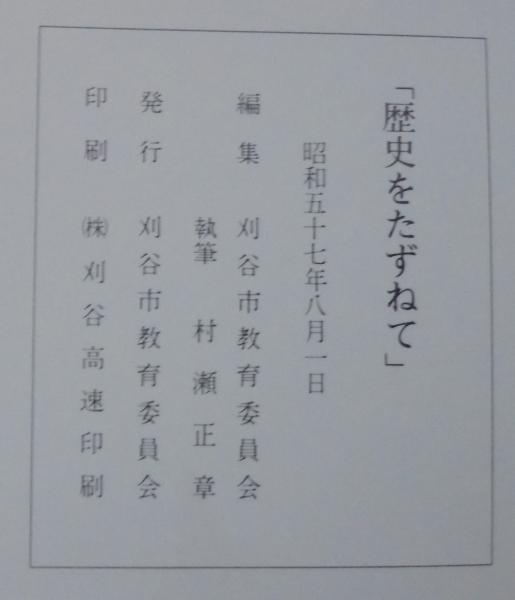 「歴史をたずねて」
昭和五十七年八月一日
編集 刈谷市教育委員会
執筆 村瀬正章
発行 刈谷市教育委員会
印刷 ㈱刈谷高速印刷